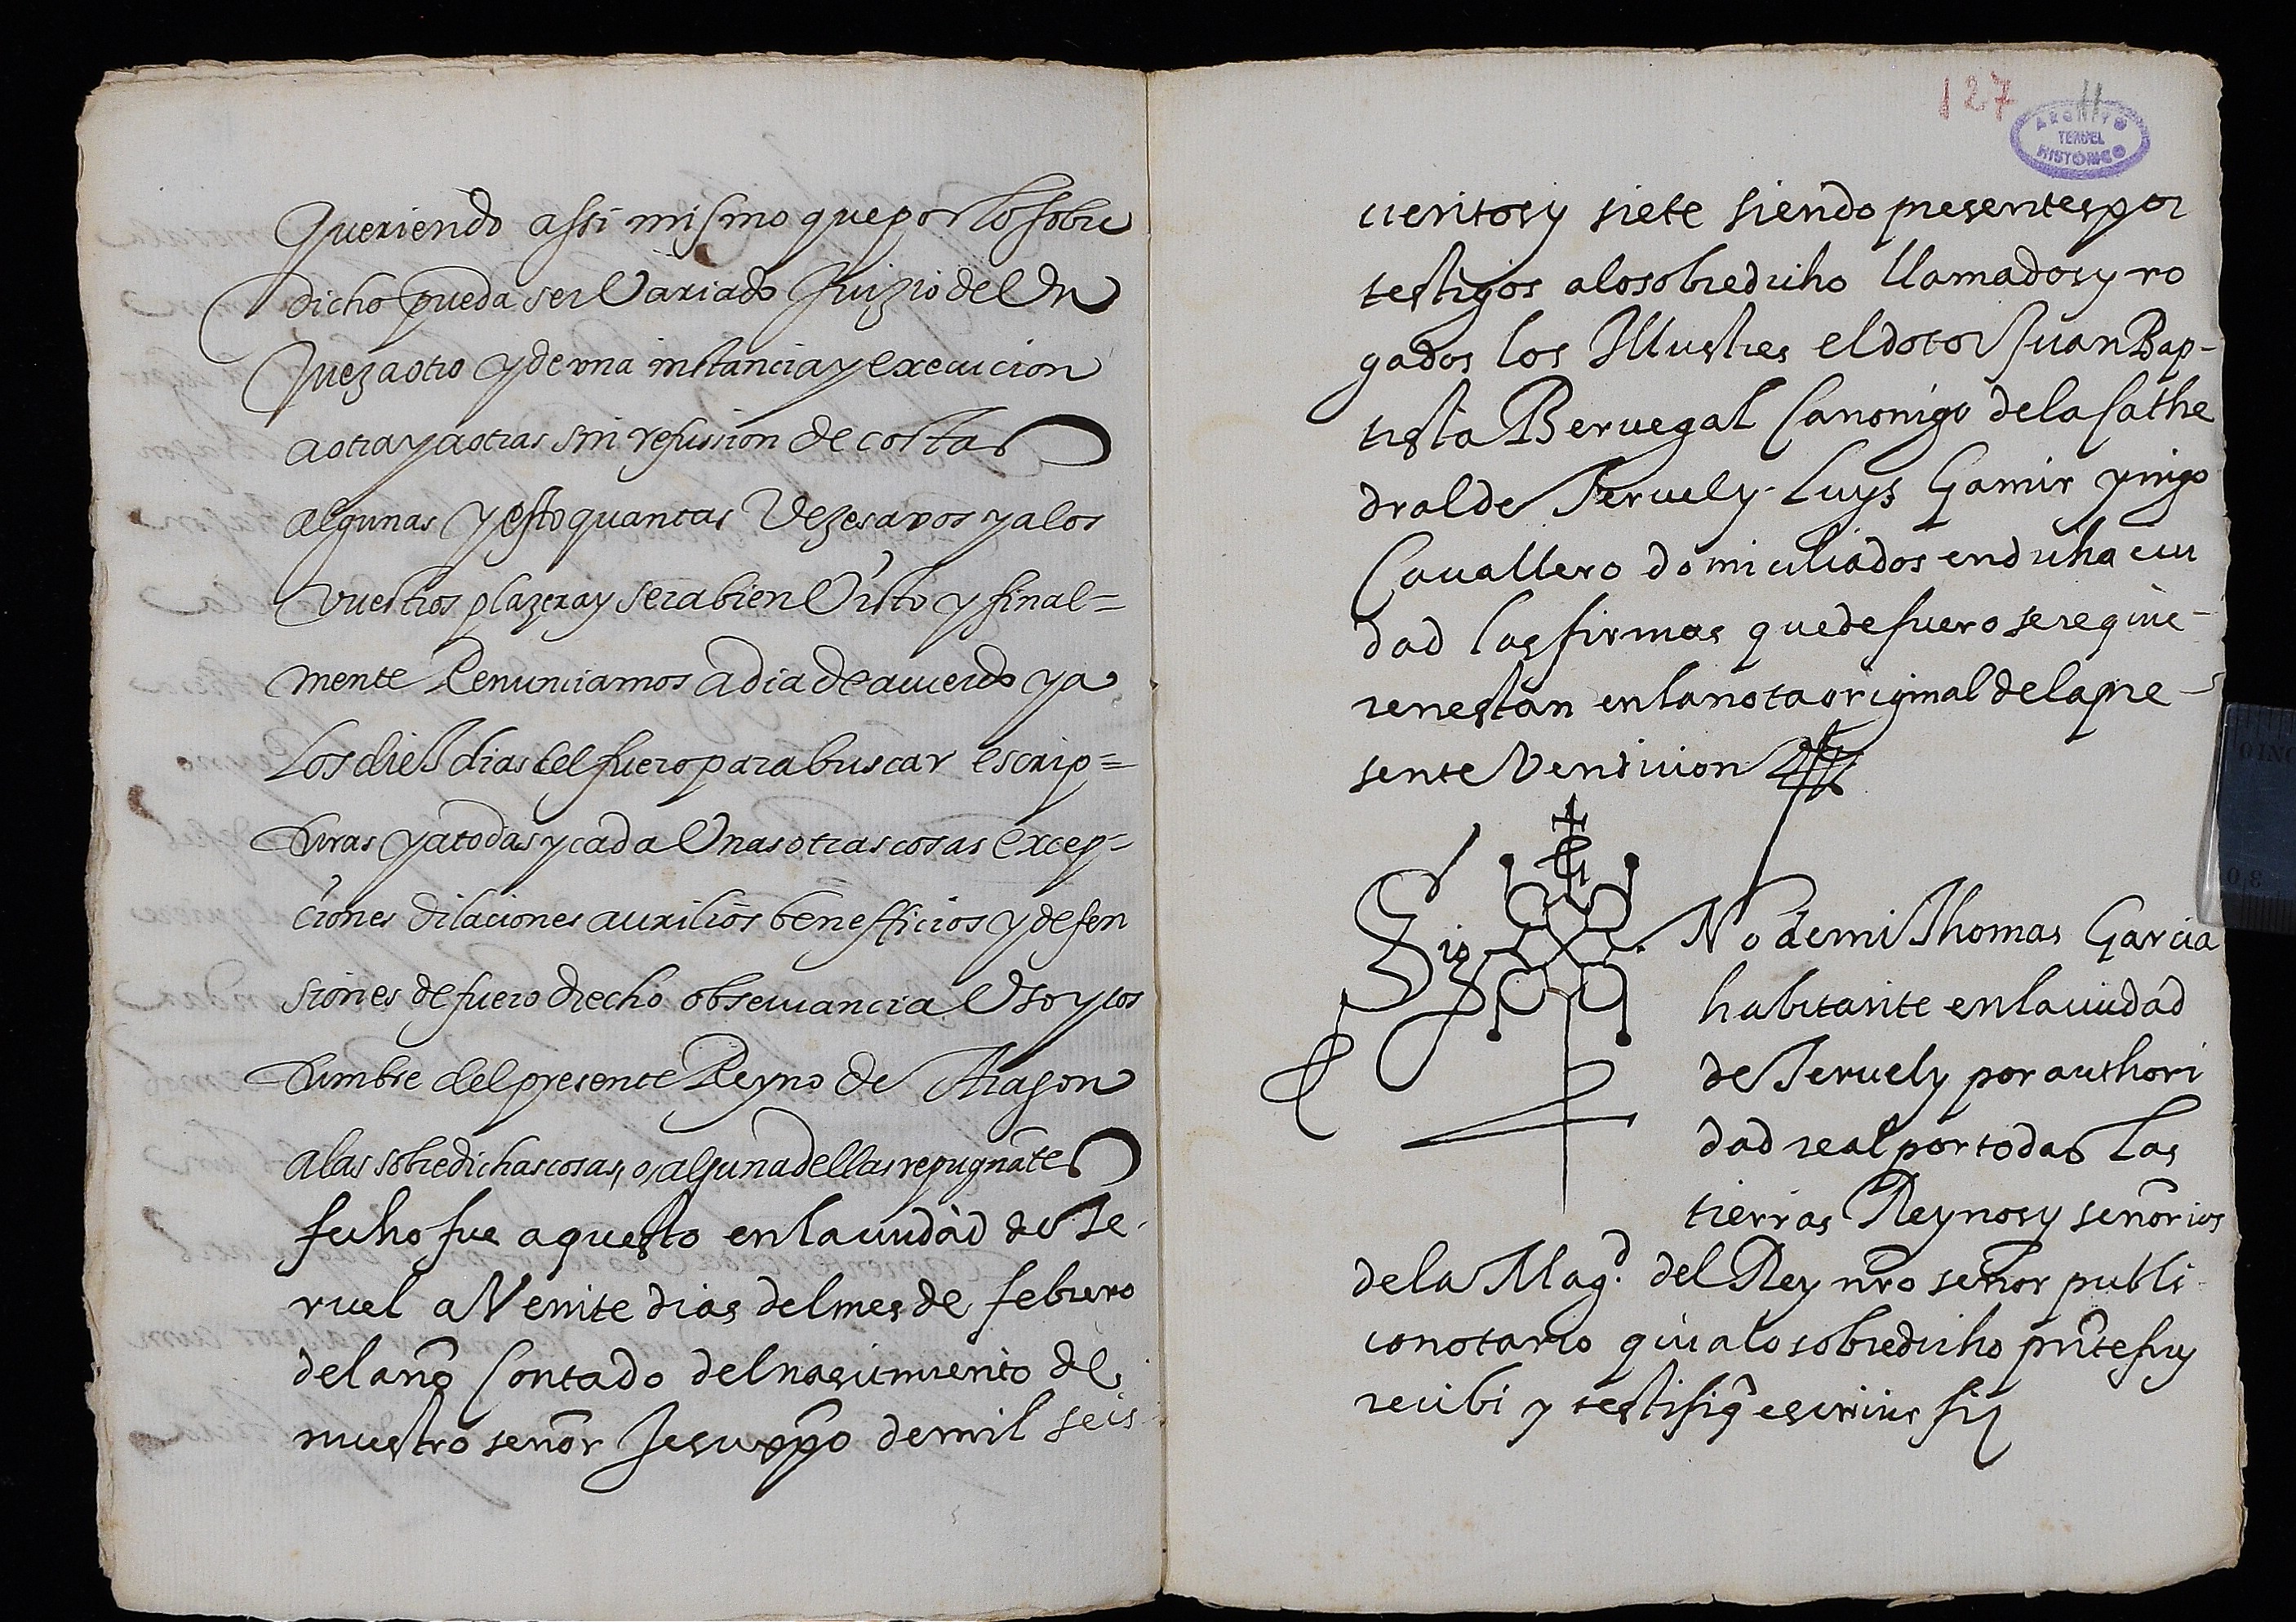 Queriendo assi mismo que por lo sobre
dicho pueda ser Variado Juizio de Un
Juez a otro y de una instancia y execucion
a otra y a otras sin refussion de costas
algunas y esto quantas Vezes a vos y a los
vuestros plazera y sera bien Visto y final=
mente Renunciamos a dia de acuerdo y a
Los diez dias del fuero para buscar escrip=
turas y a todas y cada Unas otras cosas excep=
ciones dilaciones auxilios benefficios y defen
siones de fuero drecho observancia Uso y cos
tumbre del presente Reyno de Aragon
a las sobredichas cosas, o, alguna dellas repugnãtes
fecho fue aquesto en la ciudad de Te-
ruel a Veinte dias del mes de febrero
del año Contado del nascimiento de
nuestro señor Jesuxpo de mil seis
127
11
ARCHIVO
TERUEL
HISTÓRICO
cientos y siete siendo presentes por
testigos a lo sobredicho llamados y ro
gados los Illustres el dotor Juan Bap-
tista Beruegal Canonigo de la Cathe
dral de Teruel y Luys Gamir ynigo
Cauallero domiciliados en dicha ciu
dad las firmas que de fuero se requie-
ren estan en la nota original de la pre-
sente Vendicion
Sig No de mi Thomas Garcia
habitante en la ciudad
de Teruel y por authori
dad real por todas las
tierras Reynos y señorios
de la Magd. del Rey nro señor publi
co notario qui a lo sobredicho pnte fuy
recibi y testifiq̃ escriuir fiz